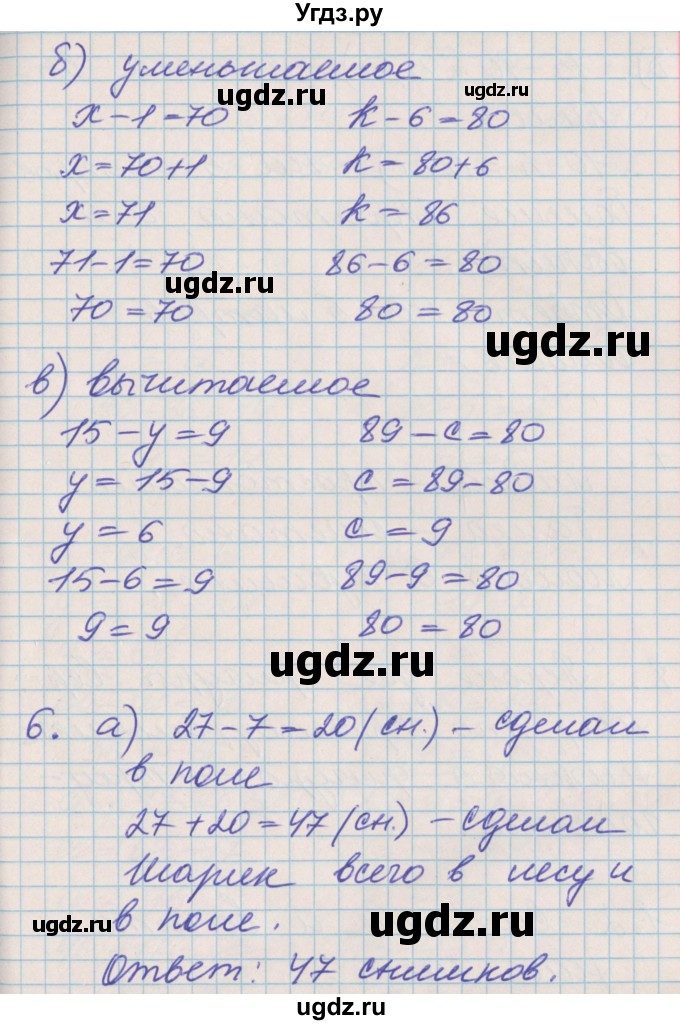 Угдз.ру
б) уменьшаемое
x - 1 = 70 k - 6 = 80
x = 70 + 1 k = 80 + 6
x = 71 k = 86
71 - 1 = 70 86 - 6 = 80
70 = 70 80 = 80
в) вычитаемое
15 - y = 9 89 - c = 80
y = 15 - 9 c = 89 - 80
y = 6 c = 9
15 - 6 = 9 89 - 9 = 80
9 = 9 80 = 80
6. а) 27 - 7 = 20 (сн.) - сделал
в поле
27 + 20 = 47 (сн.) - сделал
Шарик всего в лесу и
в поле.
Ответ: 47 снимков.
ugdz.ru
ugdz.ru
ugdz.ru
ugdz.ru
ugdz.ru
ugdz.ru
ugdz.ru
ugdz.ru